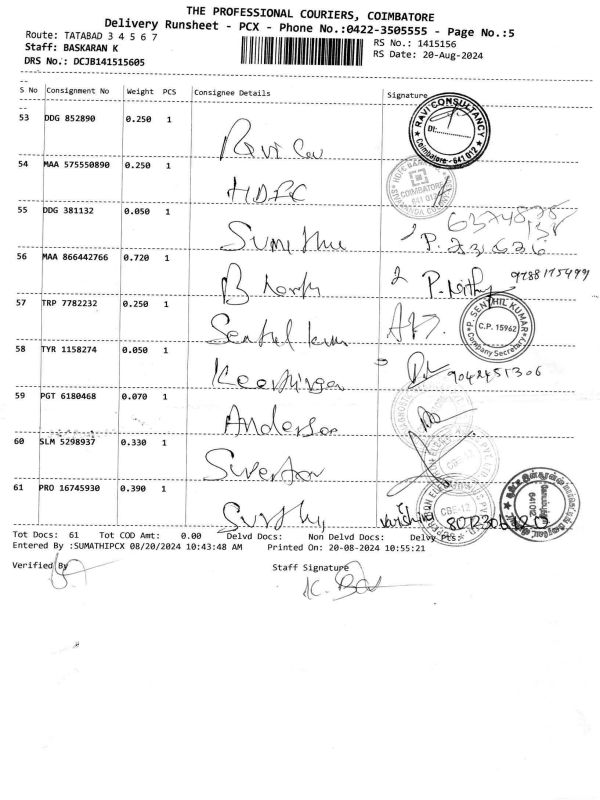 THE PROFESSIONAL COURIERS, COIMBATORE
Delivery Runsheet - PCX - Phone No.:0422-3505555 - Page No.:5
Route: TATABAD 3 4 5 6 7
RS No.: 1415156
Staff: BASKARAN K
RS Date: 20-Aug-2024
DRS No.: DCJB141515605
S No Consignment No Weight PCS Consignee Details Signature
53 DDG 852890 0.250 1
RAVI CONSULTANCY
Dt:
Coimbatore - 641 012
Ravi Con
54 MAA 575550890 0.250 1
COIMBATORE
HDFC
55 DDG 381132 0.050 1
Sumithu
56 MAA 866442766 0.720 1
2 P. 9788175499
57 TRP 7782232 0.250 1
P. SENTHIL KUMAR
C.P. 15962
Company Secretary
Senthil kum
58 TYR 1158274 0.050 1
9042451306
59 PGT 6180468 0.070 1
Anderson
60 SLM 5298937 0.330 1
CBE-12
61 PRO 16745930 0.390 1
CBE-12
Tot Docs: 61 Tot COD Amt: 0.00 Delvd Docs: Non Delvd Docs: Delvy Pts:
Entered By :SUMATHIPCX 08/20/2024 10:43:48 AM Printed On: 20-08-2024 10:55:21
Verified By
Staff Signature
K. Bas